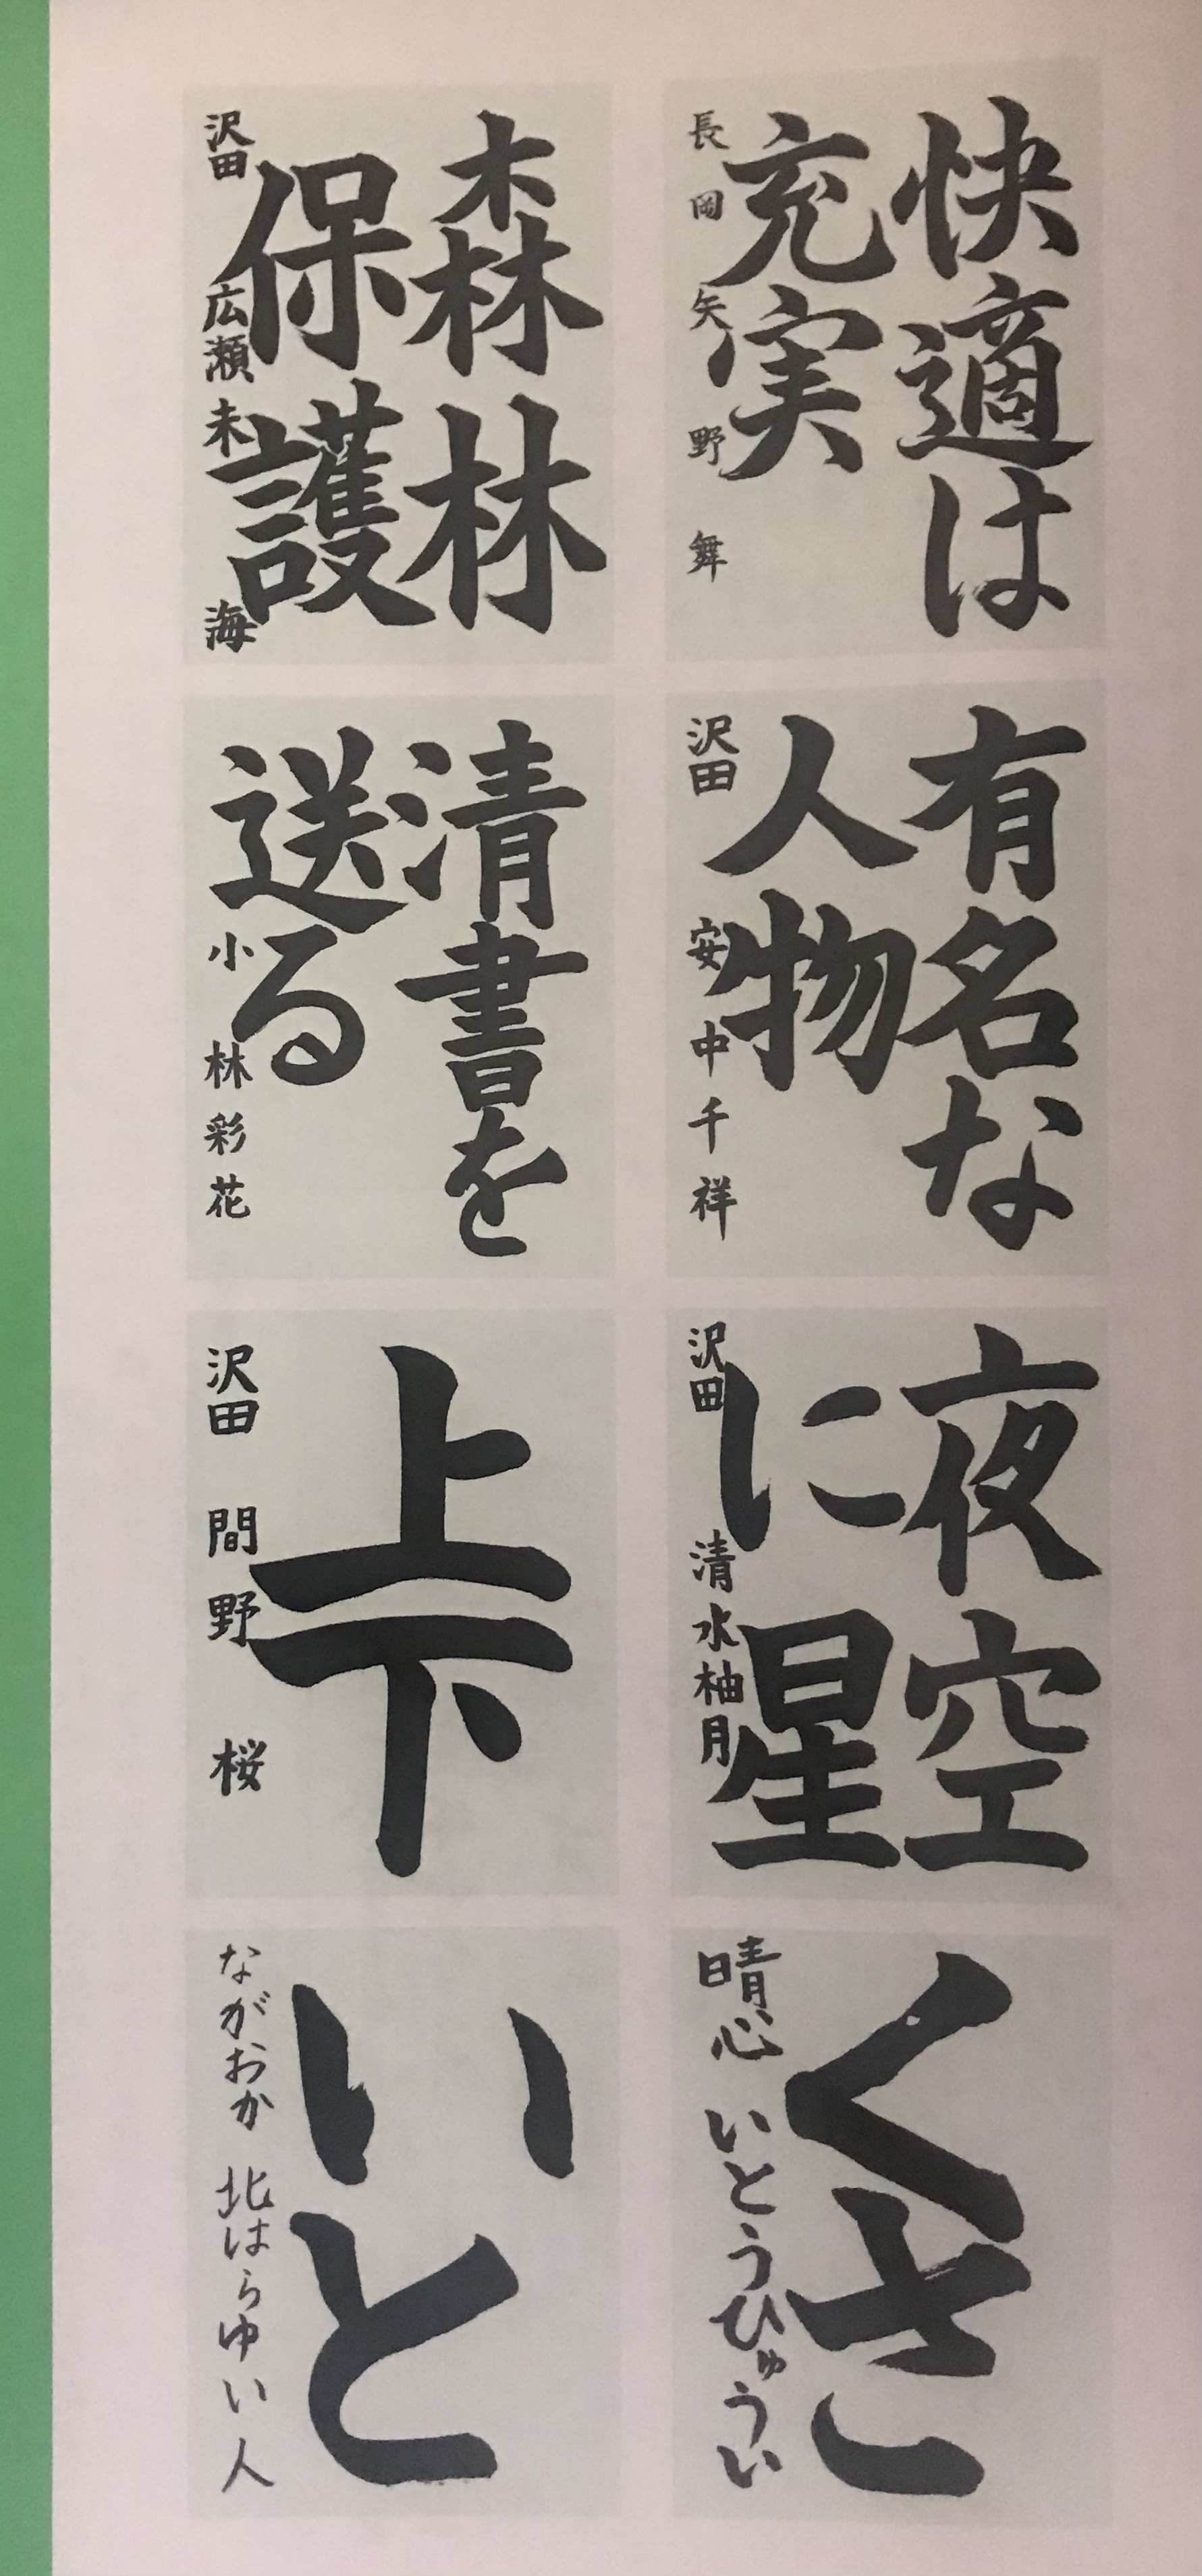 快適は
充実
長岡 矢野 舞
森林
保護
沢田 広瀬未海
有名な
人物
沢田 安中千祥
清書を
送る
沢田 小林彩花
夜空
に星
沢田 清水柚月
上下
沢田 間野 桜
くさ
晴心 いとうひゅうい
いと
ながおか 北はらゆい人